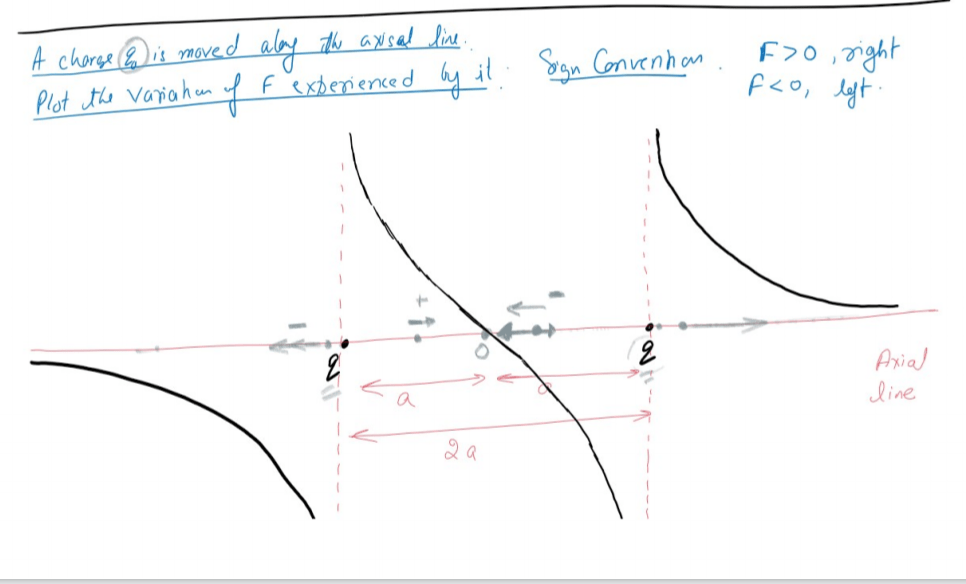 A charge q₀ is moved along the axial line.
Plot the variation of F experienced by it.
Sign Convention.
F>0, right
F<0, left.
+
−
−
O
q
q
a
a
2a
Axial
line